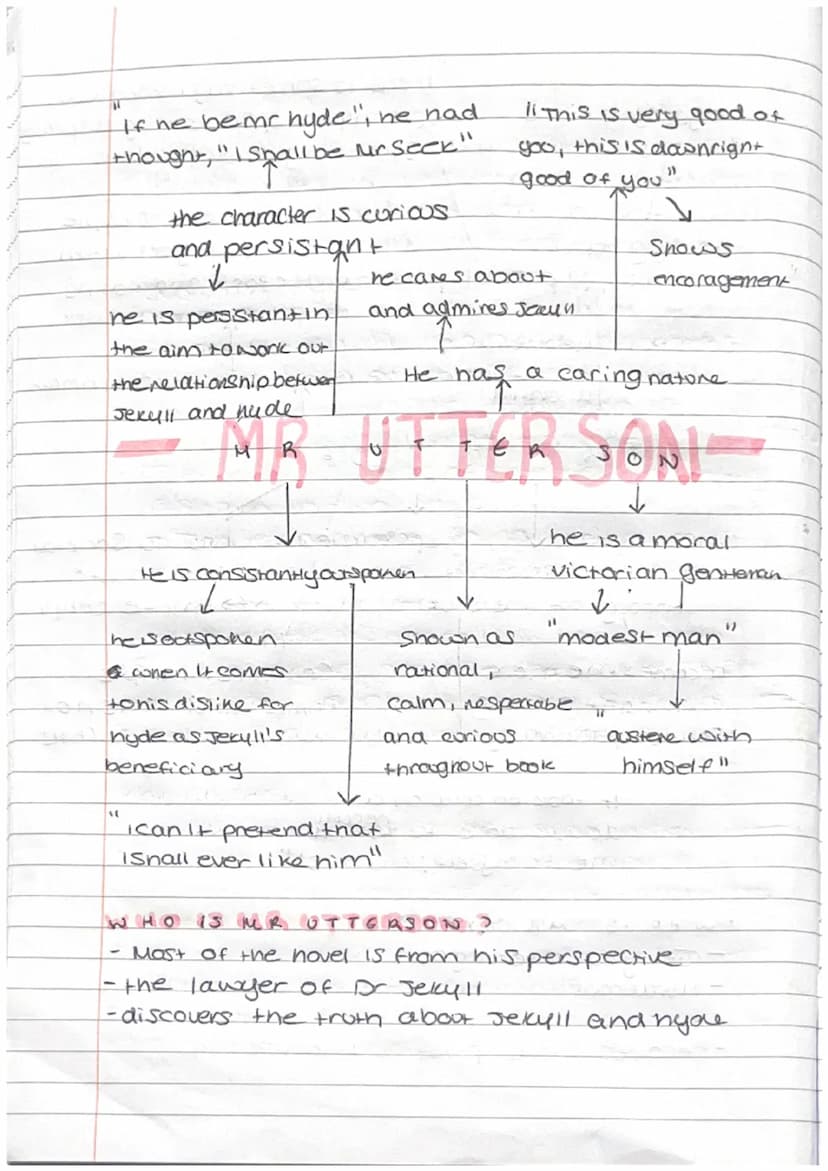 "If he be mr hyde", he had
thought, "I shall be Mr Seek"
the character is curious
and persistant
he is persistant in
the aim to work out
the relationship between
Jekyll and hyde
"This is very good of
you, this is downright
good of you"
Shows
encoragement
he cares about
and admires Jekyll
He has a caring nature
- MR UTTERSON -
He is consistantly outspoken
he is outspoken
when it comes
to his dislike for
hyde as Jekyll's
beneficiary
"i can't pretend that
i shall ever like him"
Shown as
rational,
calm, respectable
and curious
throughout book
he is a moral
victorian gentleman
"modest man"
"austere with
himself"
WHO IS MR UTTERSON?
- Most of the novel is from his perspective
- the lawyer of Dr Jekyll
- discovers the truth about Jekyll and hyde